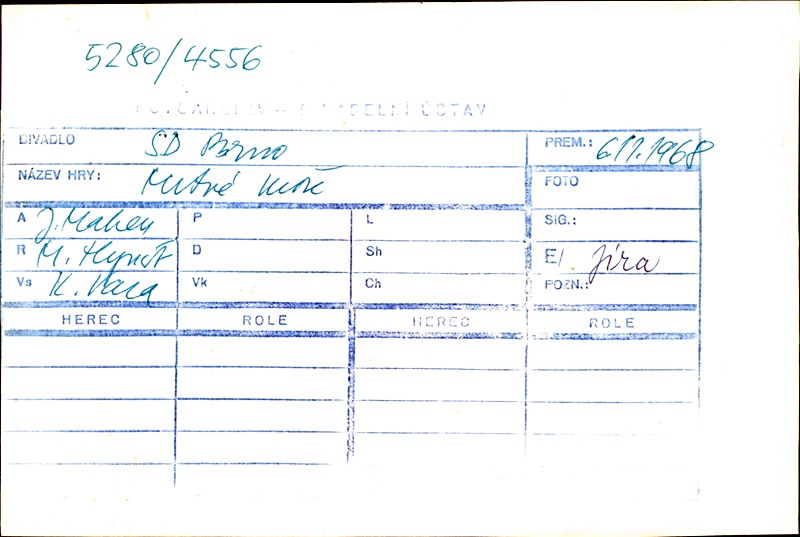 5280/4556
DIVADELNÍ ÚSTAV
DIVADLO SD Brno PREM.: 6.11.1968
NÁZEV HRY: Mrtvé moře FOTO
A J. Mahen P L SIG.:
R M. Hynšt D Sh E/ Jíra
Vs K. Vaca Vk Ch POZN.:
HEREC ROLE HEREC ROLE